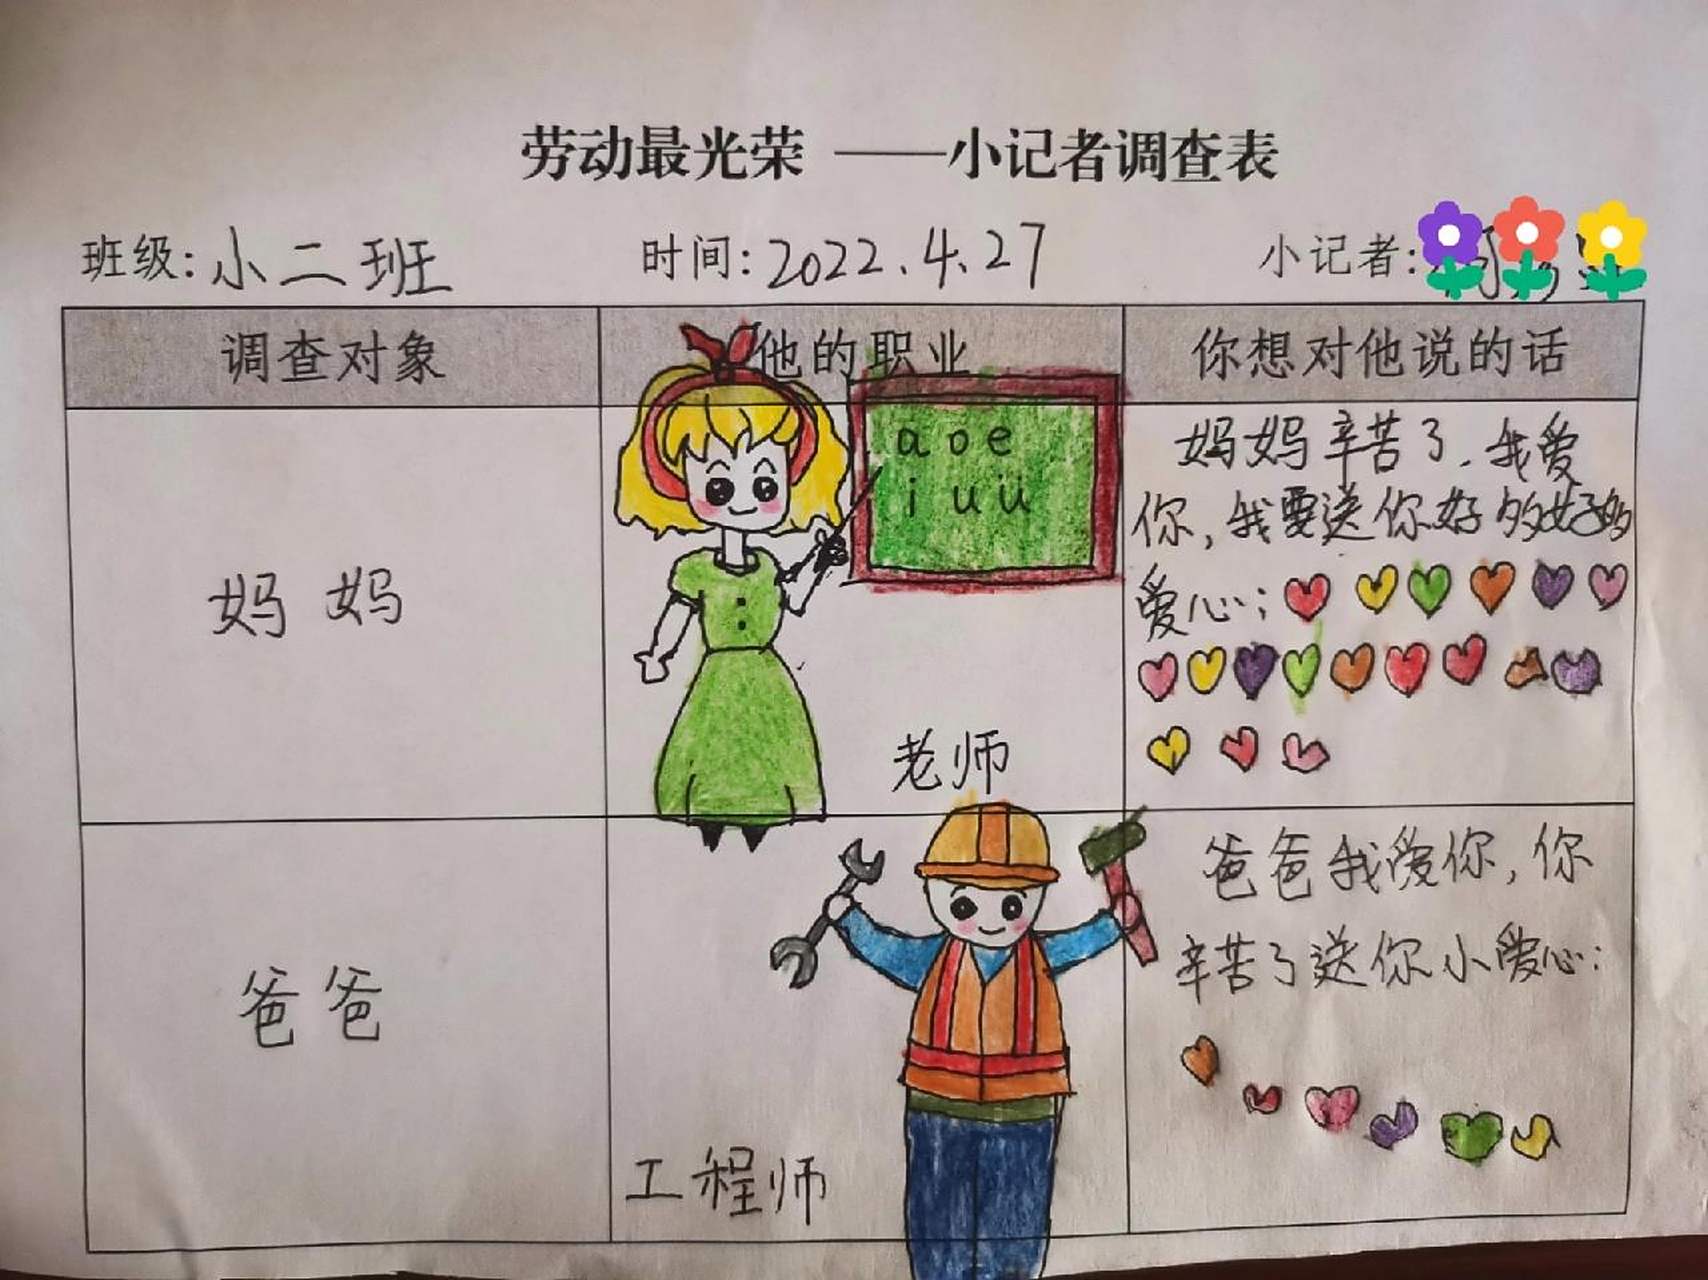 劳动最光荣 ——小记者调查表
班级:小二班 时间:2022.4.27 小记者:
调查对象 他的职业 你想对他说的话
妈妈
a o e
i u ü
老师
妈妈辛苦了.我爱
你,我要送你好多好多
爱心:
爸爸
工程师
爸爸我爱你,你
辛苦了送你小爱心: